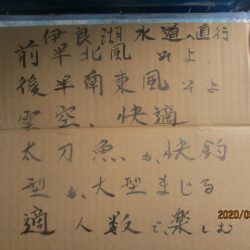 伊良湖水道へ直行
前半北風 そよ
後半南東風そよ
曇空、快適
太刀魚も、快釣
型も、大型まじる
適人数で、楽しむ
2020/0